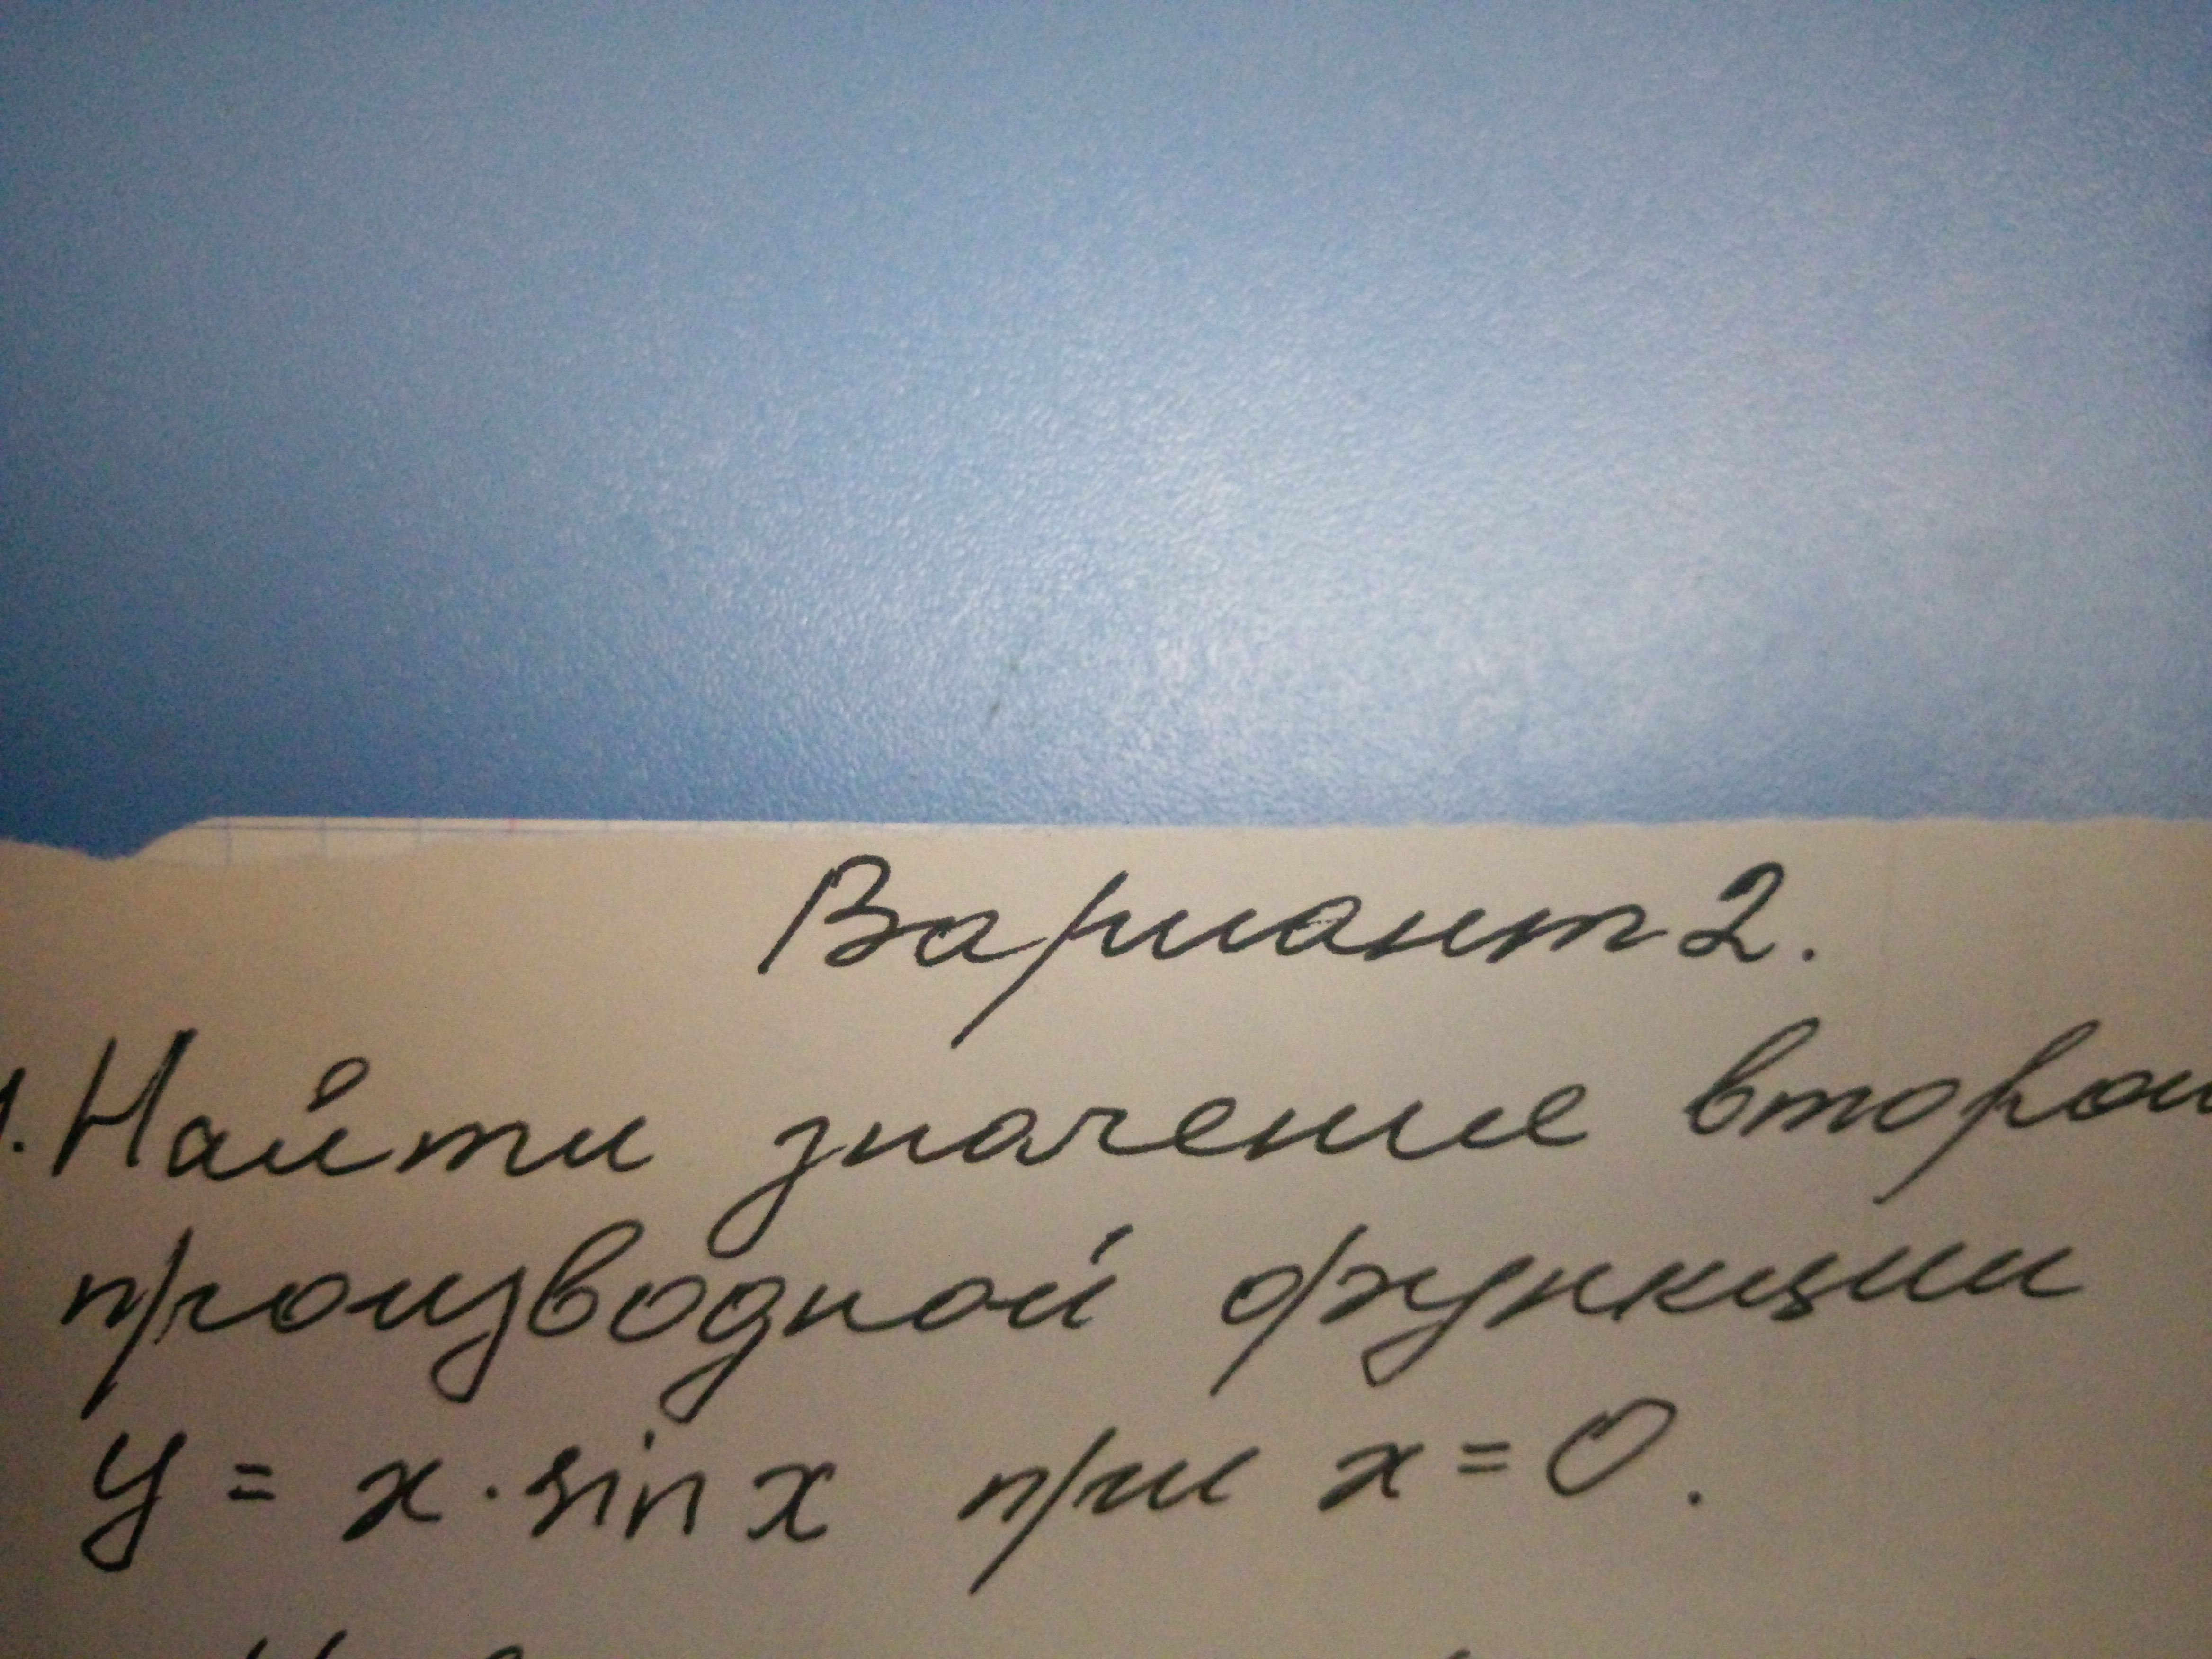 Вариант 2.
1. Найти значение второй
производной функции
y = x · sin x при x = 0.